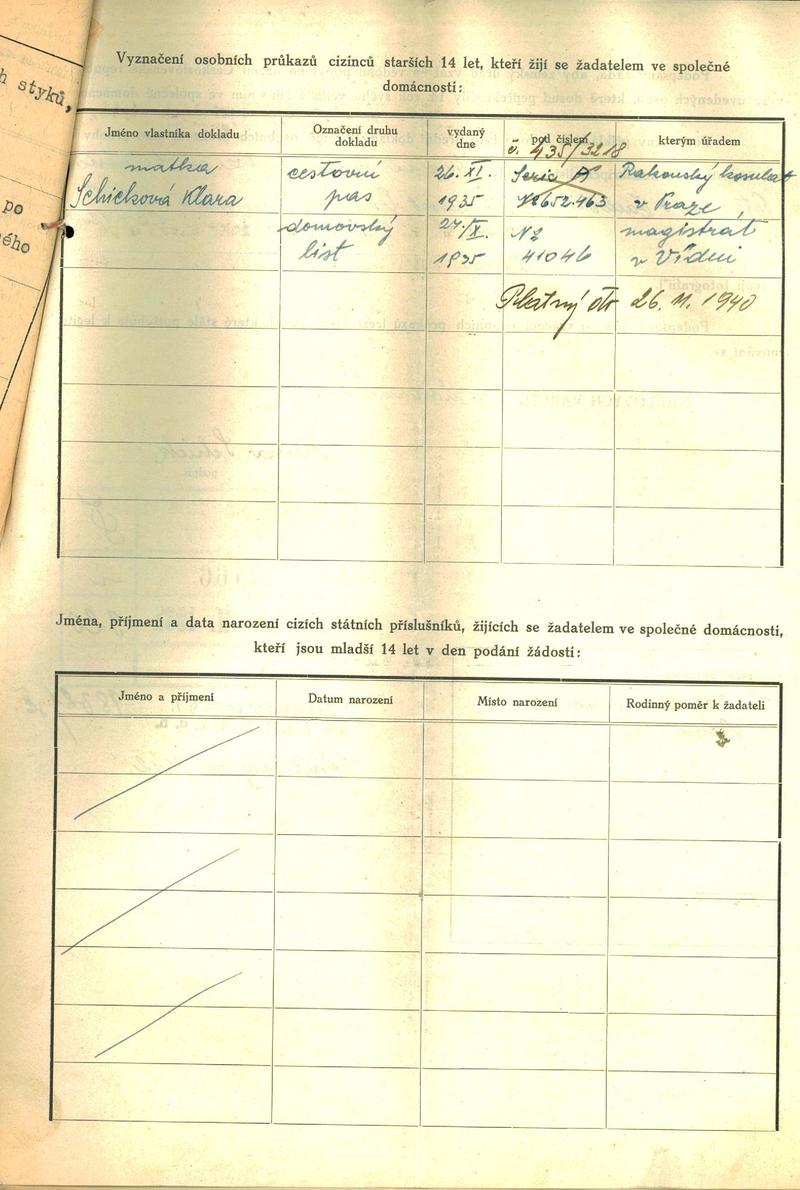 h styků,
po
ého
Vyznačení osobních průkazů cizinců starších 14 let, kteří žijí se žadatelem ve společné
domácnosti:
Jméno vlastníka dokladu
Označení druhu
dokladu
vydaný
dne
pod číslem
kterým úřadem
č. 435/3218
matka cestovní 26. XI. Serie A Rakouský konsulat
Schicková Klara pas 1935 № 652.463 v Praze,
domovský 27/X. № magistrát
list 1935 41046 v Vídni
Platný do 26. 11. 1940
Jména, příjmení a data narození cizích státních příslušníků, žijících se žadatelem ve společné domácnosti,
kteří jsou mladší 14 let v den podání žádosti:
Jméno a příjmení Datum narození Místo narození Rodinný poměr k žadateli